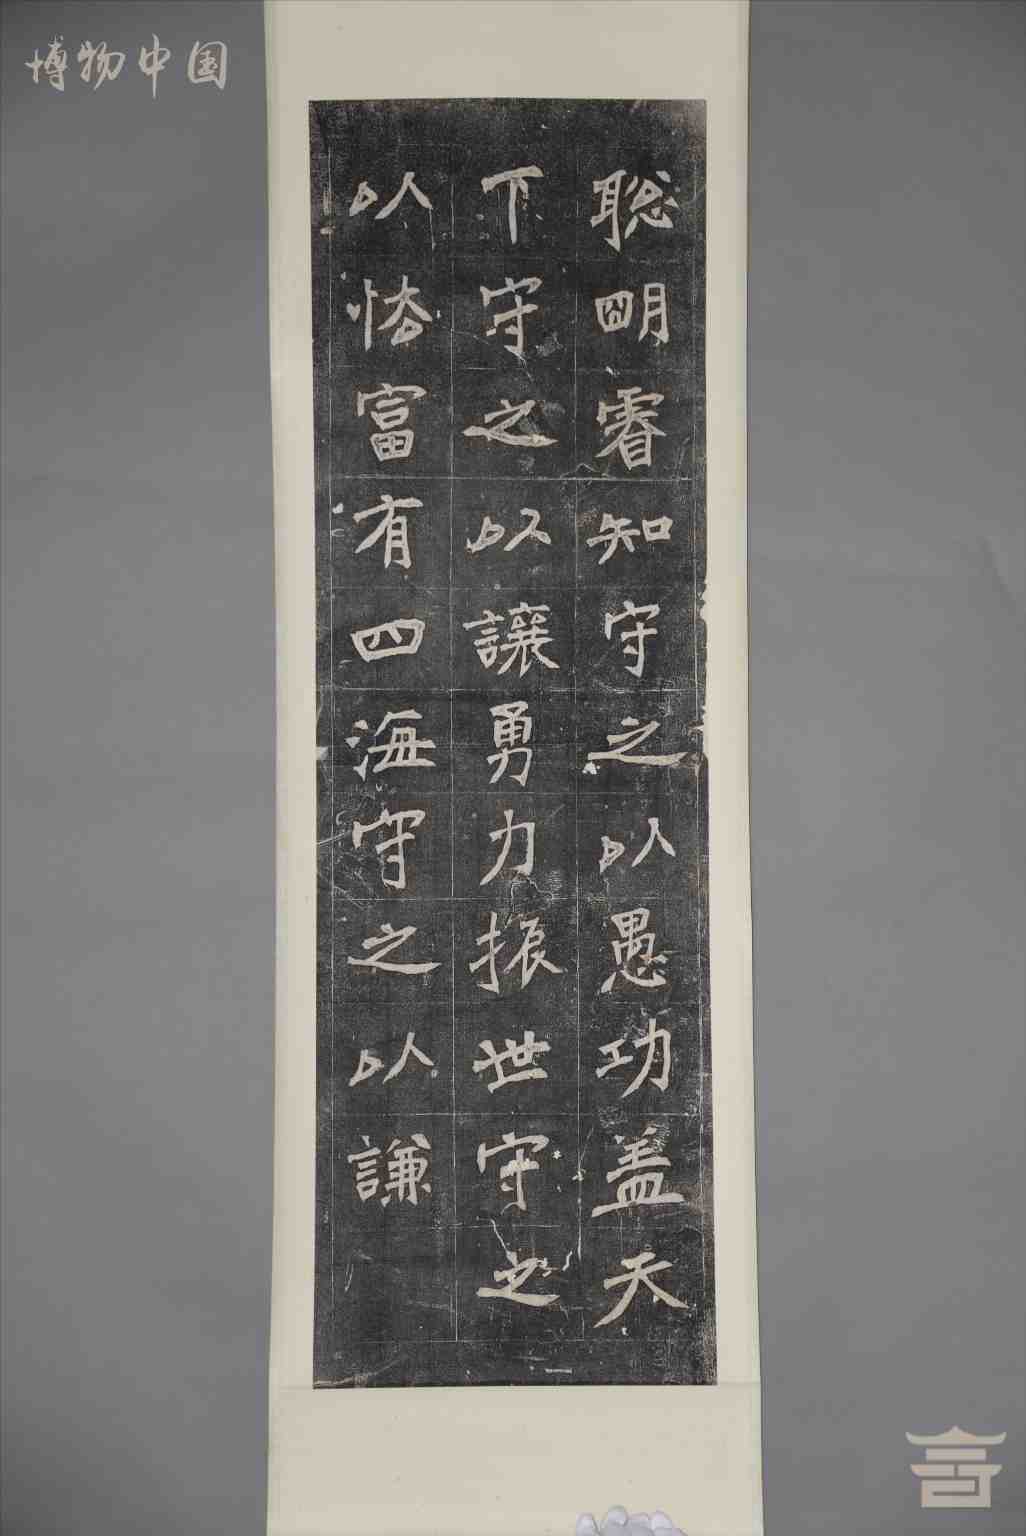 博物中国
聡明睿知守之以愚功盖天
下守之以讓勇力振世守之
以怯富有四海守之以謙